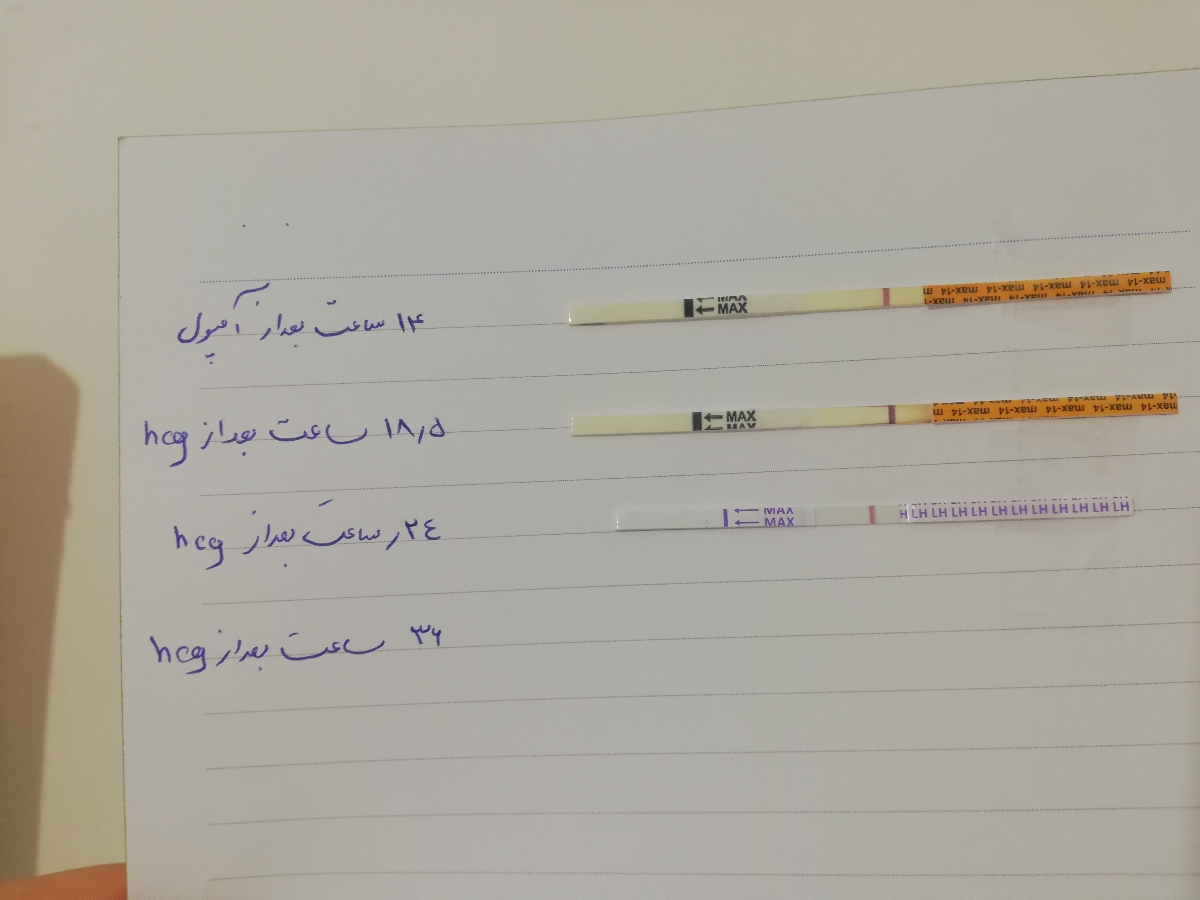 ۱۴ ساعت بعد از آمپول
MAX
MAX
max-14 max-14 max-14 max-14 m
۱۸٫۵ ساعت بعد از hcg
MAX
MAX
max-14 max-14 max-14 max-14 m
۲٤ ساعت بعد از hcg
MAX
MAX
H LH LH LH LH LH LH LH LH LH LH LH
۳۶ ساعت بعد از hcg